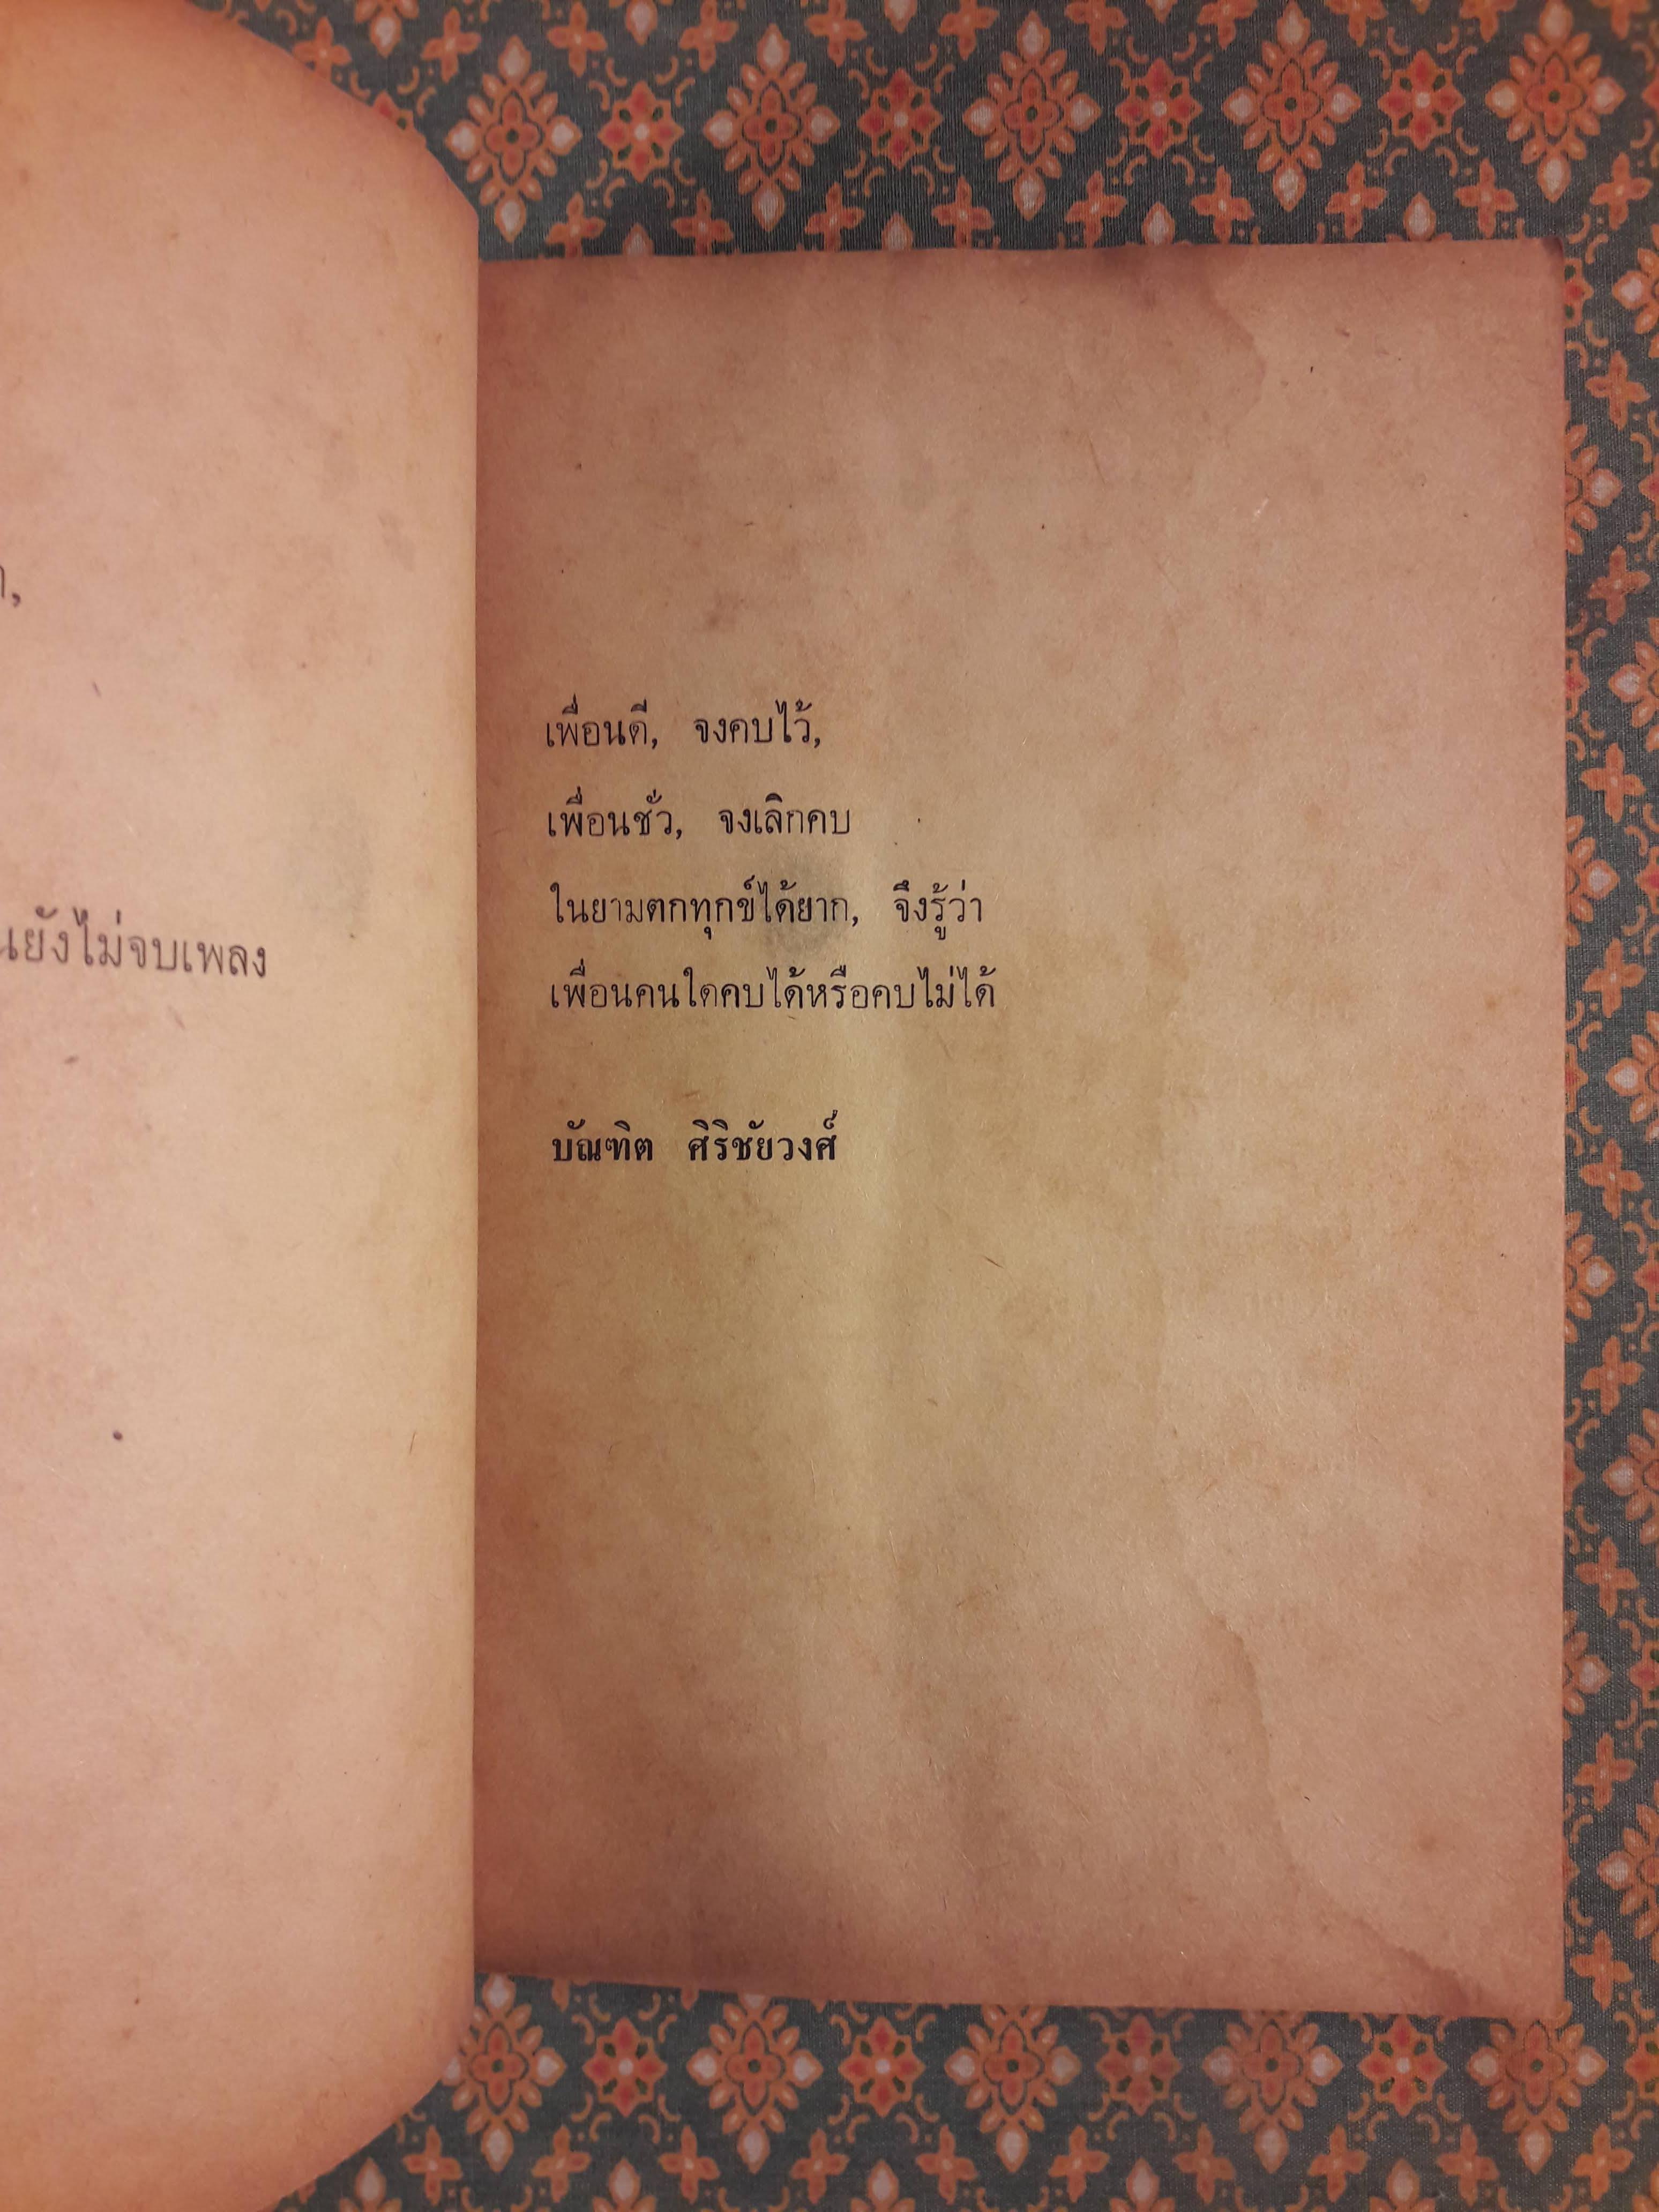 นยังไม่จบเพลง
เพื่อนดี, จงคบไว้,
เพื่อนชั่ว, จงเลิกคบ
ในยามตกทุกข์ได้ยาก, จึงรู้ว่า
เพื่อนคนใดคบได้หรือคบไม่ได้
บัณฑิต ศิริชัยวงศ์